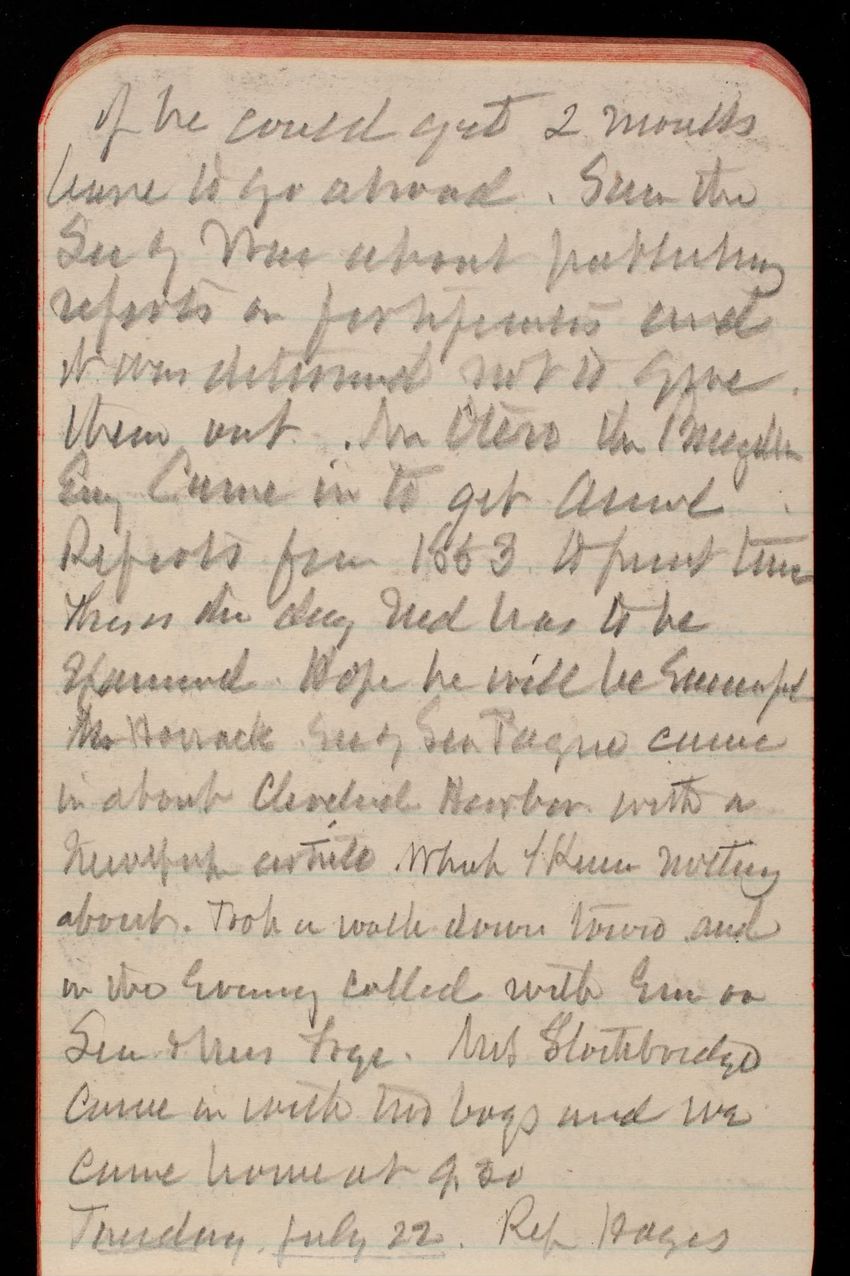 if he could get 2 months
leave to go abroad. Saw the
Sec of War about publishing
reports on fortifications and
it was determined not to give
them out. Mr Otero the
Eng Came in to get Annul
Reports from 1883 to present time
This is the day Ned has to be
Examined. Hope he will be Successful
Mr Horrack Sec of Sen Payne came
in about Cleveland Harbor with a
Newspap article which I knew nothing
about. Took a walk down town and
in the Evening called with Em on
Sen & Mrs Frye. Mrs Stockbridge
Came in with two boys and we
came home at 9.30
Tuesday July 22. Rep Hayes